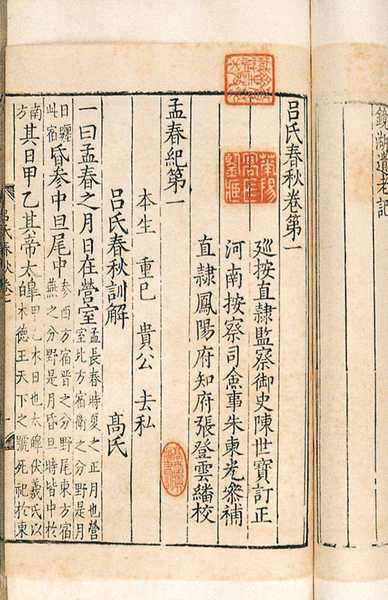 鏡湖遺老記
呂氏春秋卷第一
廵按直隸監察御史陳世寶訂正
河南按察司僉事朱東光叅補
直隸鳳陽府知府張登雲繙校
孟春紀第一
本生 重巳 貴公 去私
呂氏春秋訓解 高氏
一曰孟春之月日在營室孟長春時夏之正月也營室北方宿衞之分野是月
日躔此宿昏參中旦尾中參西方宿晉之分野尾東方宿燕之分野是月昏旦時皆中於
南方其日甲乙其帝太皥甲乙木日也太皥伏羲氏以木德王天下之號死祀於東
呂氏春秋卷一